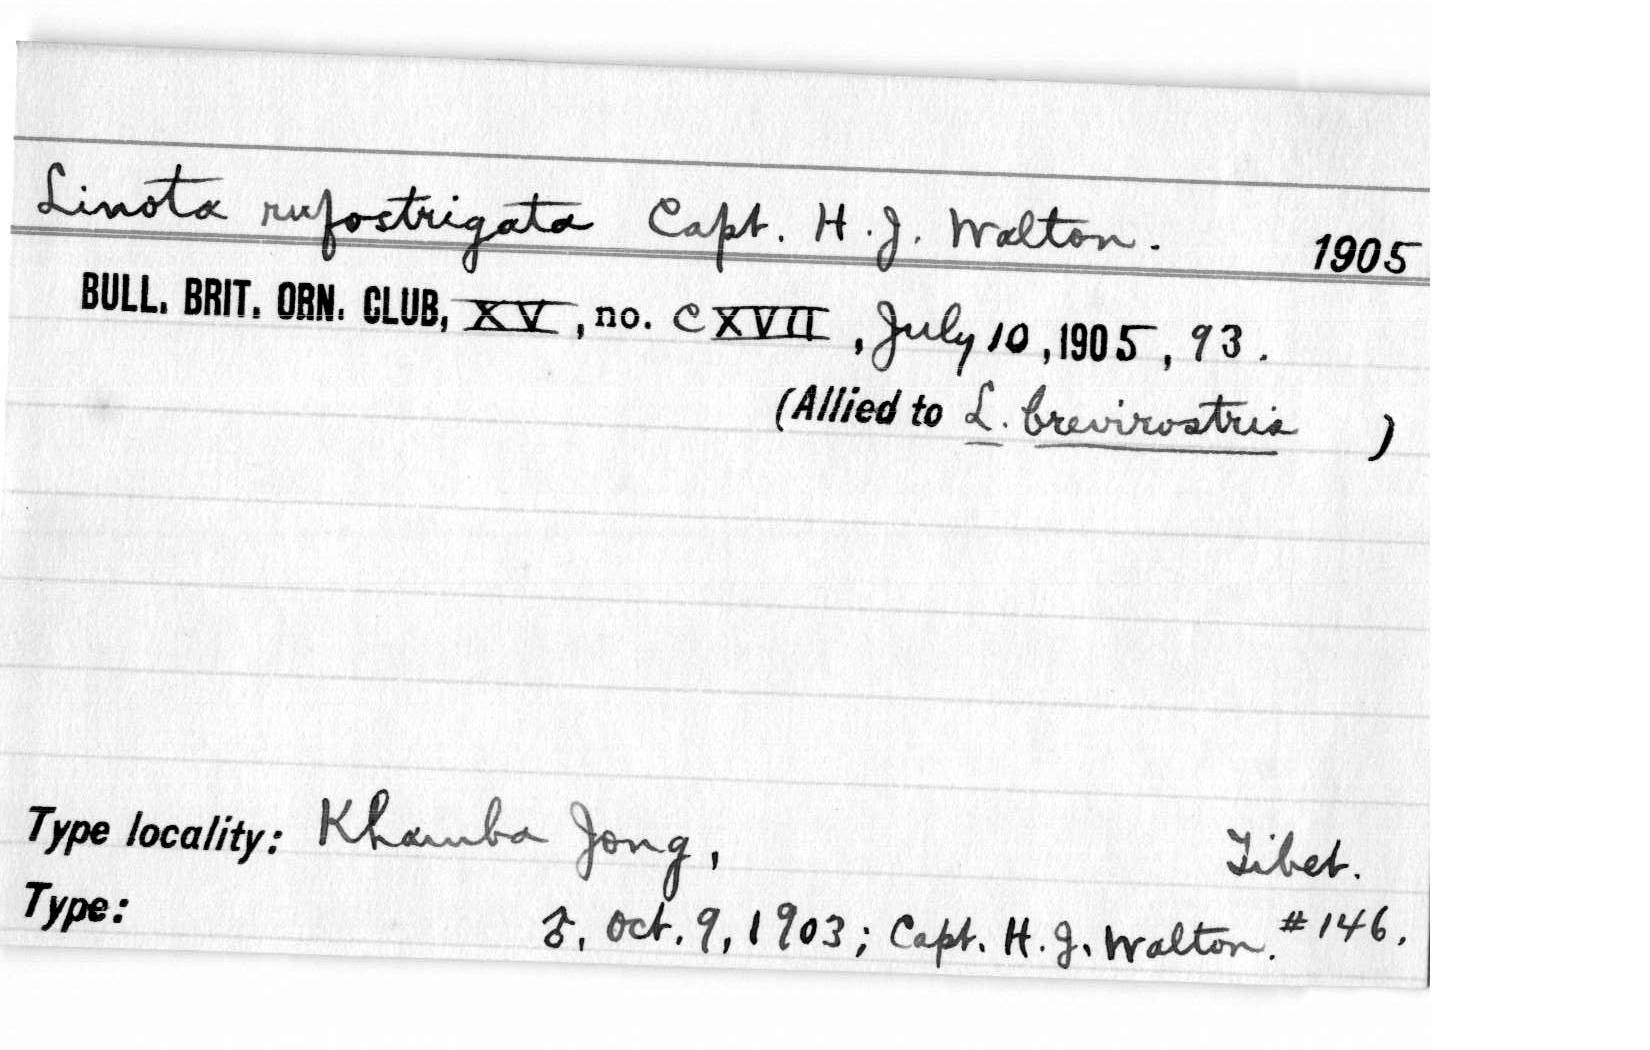 Linota rufostrigata Capt. H. J. Walton. 1905
BULL. BRIT. ORN. CLUB, XV, no. CXVII, July 10, 1905, 93.
(Allied to L. brevirostris )
Type locality: Khamba Jong, Tibet.
Type: ♂, Oct. 9, 1903; Capt. H. J. Walton. #146.